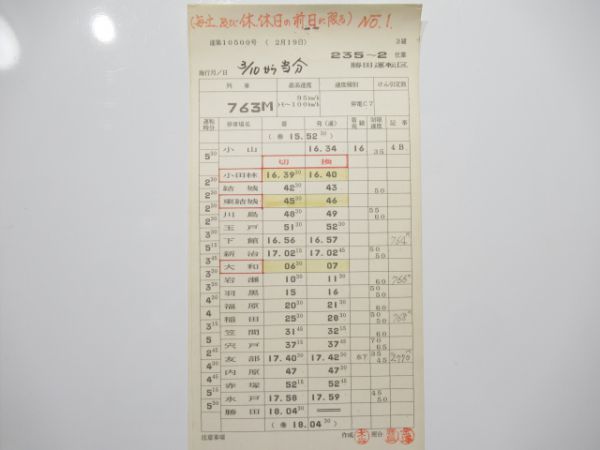 (毎土、及び休、休日の前日に限る) NO.1.
達第10509号 ( 2月19日)
235～2 仕業
施行月/日 3/10から当分 勝田運転区
列車 最高速度 速度種別 けん引定数
763M 95km/h
～100km/h 停電C7
運転時分 停車場名 着 発(通) 着発線 制限速度 記事
( 乗 15.52 30 )
小山 16.34 16 35 4B
5 30 切換
小田林 16.39 30 16.40
2 30 結城 42 30 43 50
2 30 東結城 45 30 46
2 30 川島 48 30 49 55 60
2 30 玉戸 51 30 52 30
3 30 下館 16.56 16.57 764M
5 15 新治 17.02 15 17.02 45 50 50
3 45 大和 06 30 07
3 30 岩瀬 10 30 11 30 60
4 羽黒 15 16 50 50
4 30 福原 20 30 21 30
4 稲田 25 30 28 30 50 60
3 15 笠間 31 45 32 15
5 宍戸 37 15 37 45 70 65
2 45 友部 17.40 30 17.42 30 67 35 45
4 30 内原 47 47 30
4 45 赤塚 52 15 52 45
5 15 水戸 17.58 17.59 45 50
5 30 勝田 18.04 30
( 乗 18.04 30 )
注意事項 作成 照合